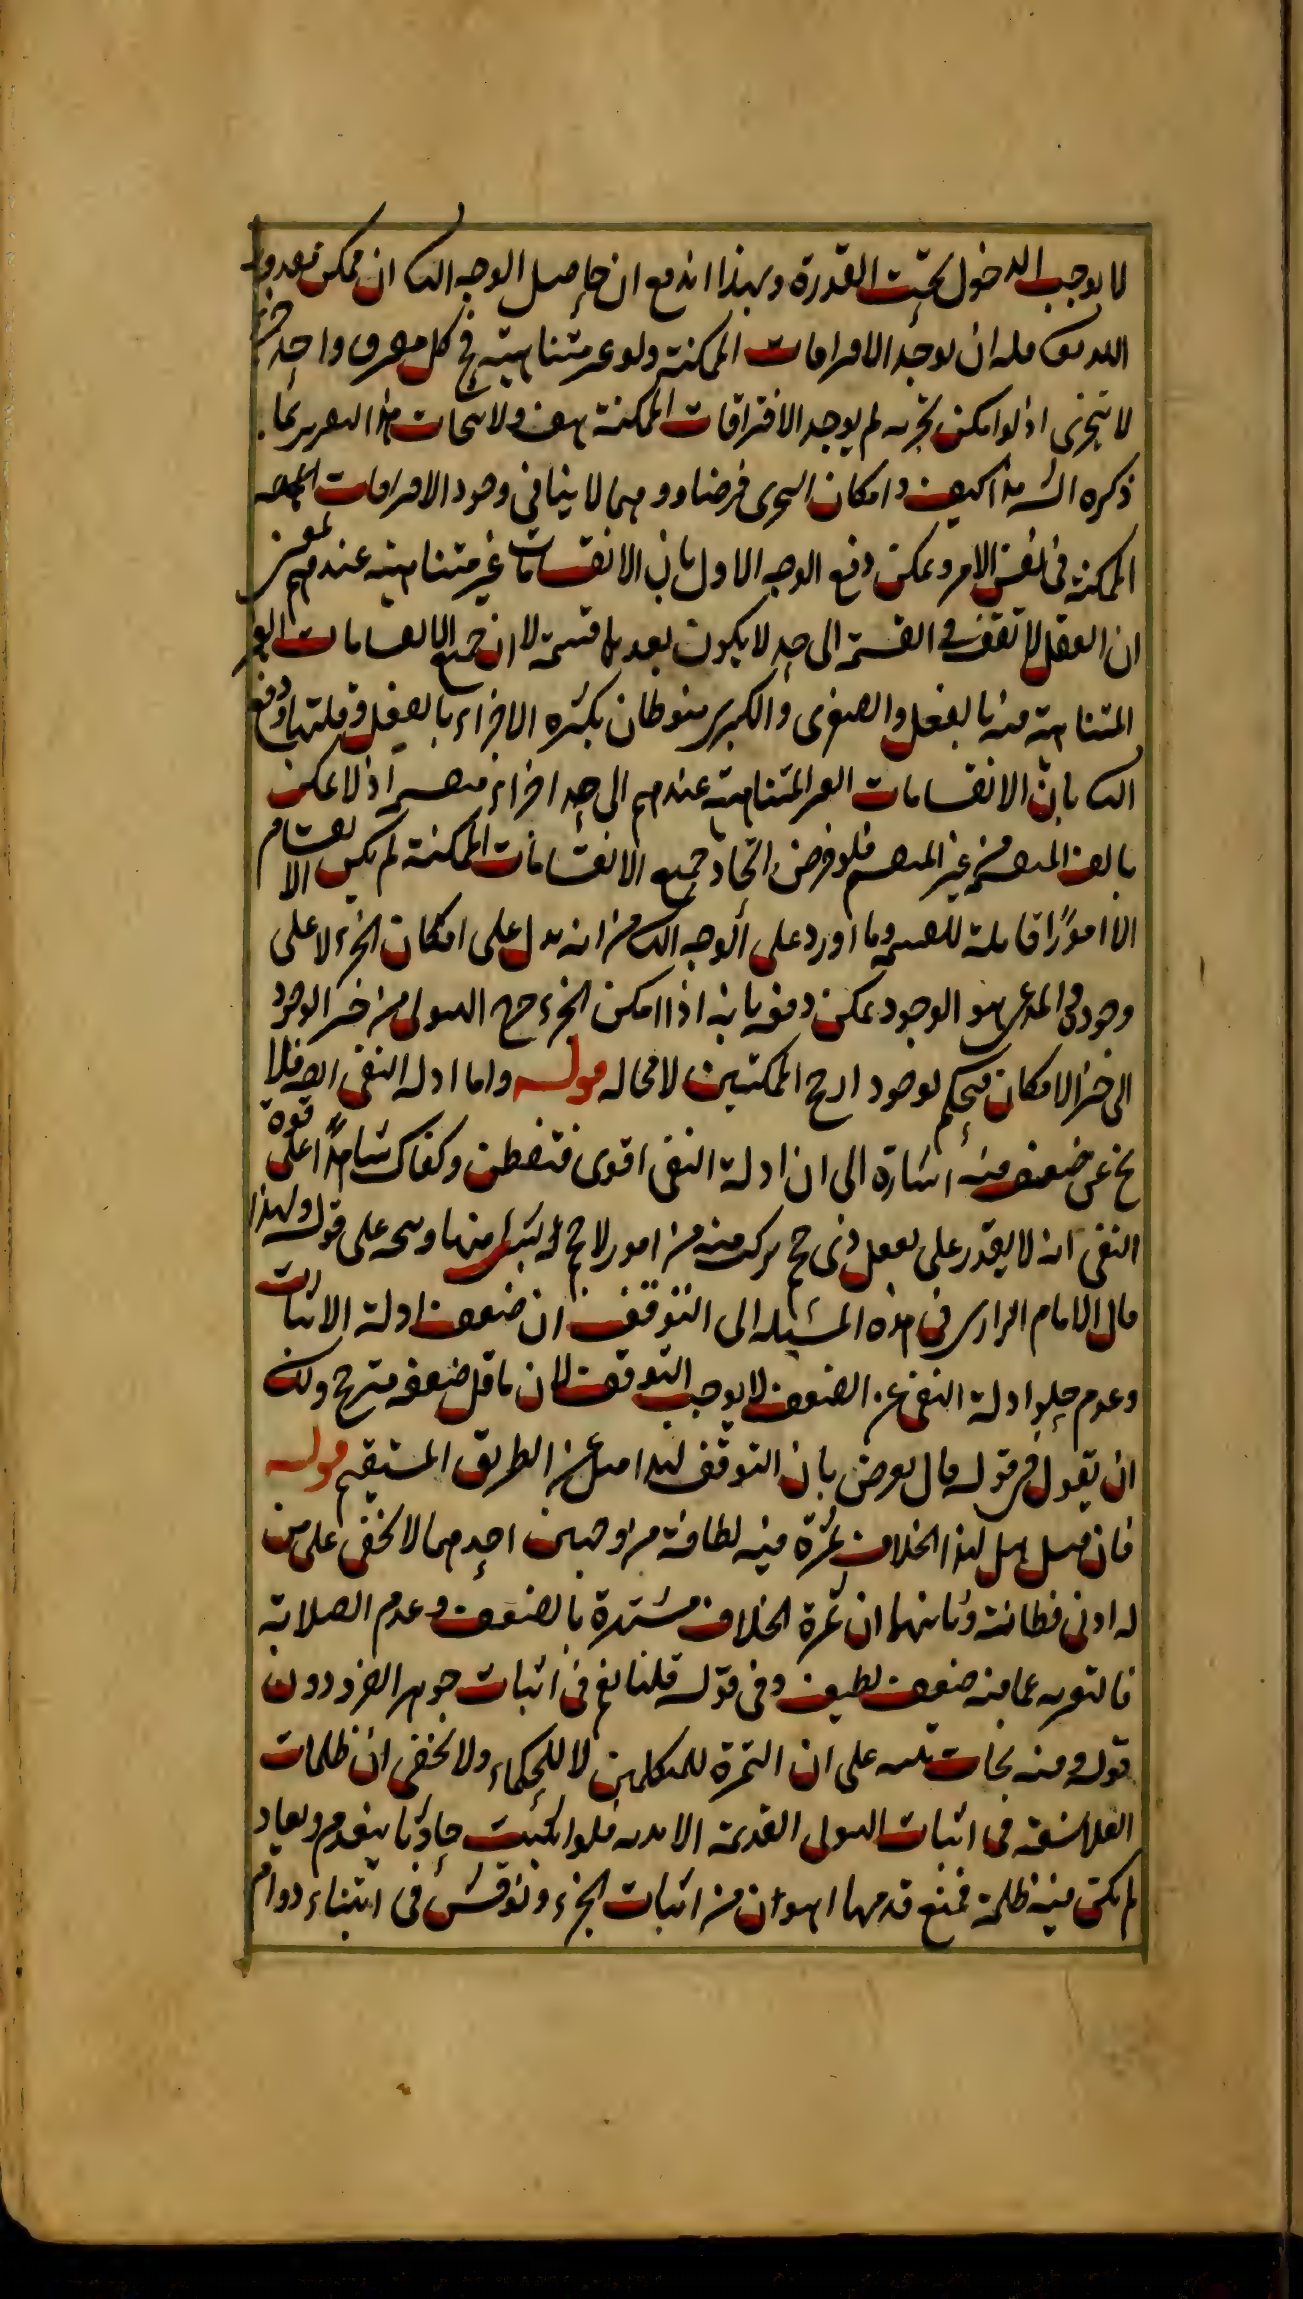 لا يوجب الدخول تحت القدرة وبهذا اندفع ان حاصل الوجه الثا ان ممكن مقدور
الله تعا فله ان يوجد الافراقات الممكنة ولو غير متناهية في كل مفرق واحد جزء
لا يتجزى اذ لو امكن تجزيه لم يوجد الافتراقات الممكنة هف ولا يتجات هذا التقرير بما
ذكره الش هذا كيف وامكان التجزى فرضا ووهما لا ينافي وجود الافراقات
الممكنة في نفس الامر ويمكن دفع الوجه الاول بان الانقسامات غير متناهية عندهم بمعنى
ان العقل لا تقف في القسمة الى حد لا يكون بعدها قسمة لا ان جميع الانقسامات الغير
المتناهية فيه بالفعل والصغرى والكبرى منوطان بكثرة الاجزاء بالفعل وقلتها ودفع
الثا بان الانقسامات الغير المتناهية عندهم الى حد اجزاء منقسمة اذ لا يمكن
تالف المنقسم من غير المنقسم فلو فرض اتحاد جميع الانقسامات الممكنة لم يكن الانقسام
الا امورًا قابلة للقسمة وما اورد على الوجه الثا من انه يدل على امكان الجزء لا على
وجوده والمدعى هو الوجود يمكن دفعه بانه اذا امكن الجزء خرج الهيولى من حيز الوجود
الى حيز الامكان فيحكم بوجود ارجح الممكنين لا محالة قوله واما ادلة النفى ايضا فلا
يخ عن ضعف فيه اشارة الى ان ادلة النفى اقوى فتفطن وكفاك شاهدًا على قوة
النفى انه لا يقدر على تعقل ذى حجم تركب منه من امور لا حجم لشئ منها وسجه على قوله ولهذا
مال الامام الرازى في هذه المسئلة الى التوقف ان ضعف ادلة الاثبات
وعدم خلو ادلة النفى عن الضعف لا يوجب التوقف لان ما قل ضعفه مترجح ولك
ان تقول في قوله مال تعرض بان التوقف لهذا ميل عن الطريق المستقيم قوله
فان قيل هل لهذا الخلاف ثمرة فيه لطافة من وجهين احدهما لا يخفى على من
له ادنى فطانة وثانيهما ان ثمرة الخلاف مشتهرة بالضعف وعدم الصلابة
فالتعبير به عما فيه ضعف لطيف وفى قوله قلنا نعم في اثبات جوهر الفرد دون
قوله وفيه نجات تنبيه على ان الثمرة للمتكلمين لا للحكماء ولا يخفى ان ظلمات
الفلاسفة في اثبات الهيولى القديمة الابدية فلو اثبت حادثا ينعدم ويعاد
لم يكن فيه ظلمة فمنع قدمها اهون من اثبات الجزء ونوقش في ابتناء دوام